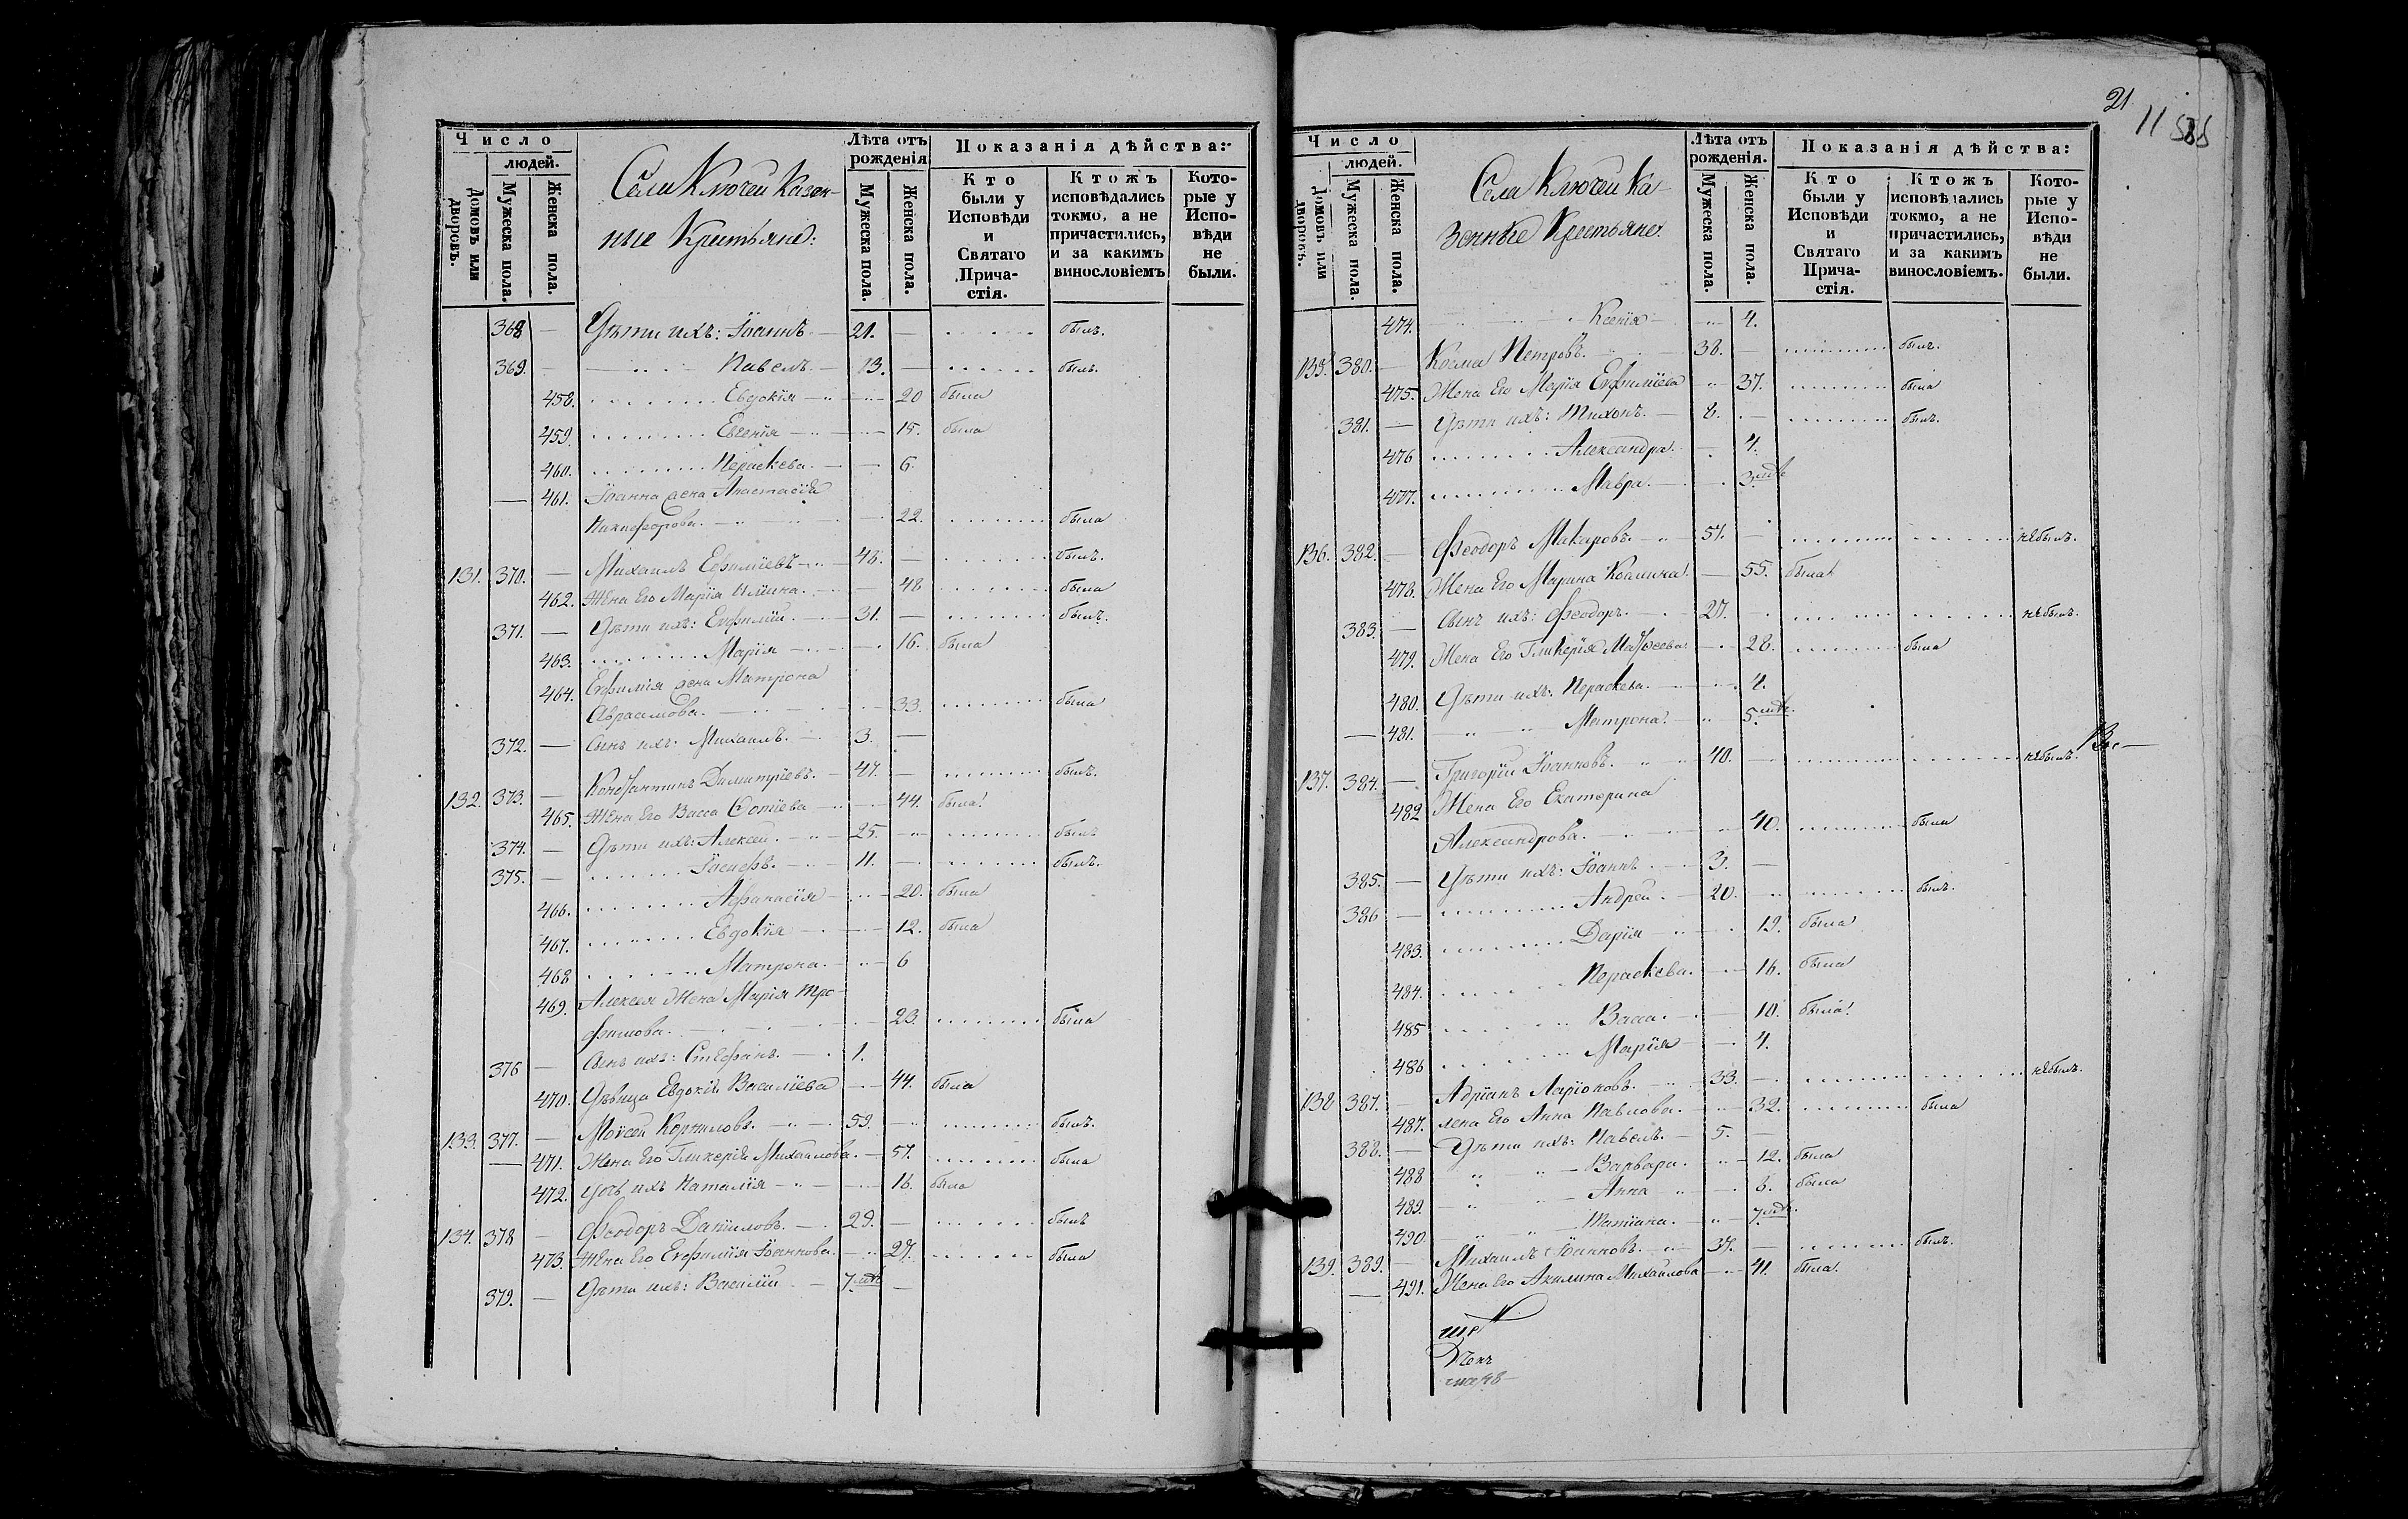 Число
людей.
Домовъ или дворовъ.
Мужеска пола.
Женска пола.
Села Ключей Казен-
ные Крестьяне:
Лѣта отъ рожденія
Мужеска пола.
Женска пола.
Показанія дѣйства:
Кто были у Исповѣди и Святаго Прича-стія.
Ктожъ исповѣдались токмо, а не причастились, и за какимъ винословіемъ
Кото-рые у Испо-вѣди не были.
368 — Дѣти ихъ: Іоаннъ. — 21. — былъ.
369. — Павелъ. — 13. — былъ.
458. Евдокія — 20 была
459. Евгенія — 15. была
460. Пераскева. — 6.
— 461. Іоанна жена Анастасія
Никифорова. — 22. была
131. 370. — Михаилъ Ефимїевъ — 48. — былъ.
462. Жена Его Марія Ильина. — 48 была
371. — Дѣти ихъ: Евфимій. — 31. — былъ.
463. Марія — 16. была
464. Евфимія жена Матрона
Авраамова. — 33. была
372. — Сынъ ихъ: Михаилъ. — 3. —
132. 373. — Константинъ Димитріевъ. — 47. — былъ.
465. Жена Его Васса Сотіева — 44. была.
374. — Дѣти ихъ: Алексей. — 25. — былъ
375. — Іосифъ. — 11. — былъ.
466. Афанасія — 20. была
467. Евдокія — 12. была
468 Матрона. — 6
469. Алексея жена Марія Тро-
фимова. — 23. была
376 — Сынъ ихъ: Стефанъ. — 1.
470. Дѣвица Евдокія Василіева — 44. была
133. 377. — Моѵсей Корниловъ. — 59. — былъ.
— 471. Жена Его Гликерія Михайлова. — 57. была
472. Дочь ихъ Наталія — 16. была
134. 378 — Феодоръ Даниловъ. — 29. — былъ
473. Жена Его Евфимія Іоаннова. — 27. была
379. — Дѣти ихъ: Василій — 7. мѣс —
21
11 585
Число
людей.
Домовъ или дворовъ.
Мужеска пола.
Женска пола.
Села Ключей Ка-
зенные Крестьяне.
Лѣта отъ рожденія.
Мужеска пола.
Женска пола.
Показанія дѣйства:
Кто были у Исповѣди и Святаго Прича-стія.
Ктожъ исповѣдались токмо, а не причастились, и за какимъ винословіемъ.
Кото-рые у Испо-вѣди не были.
474. Ксенія — 4.
135. 380. — Косма Петровъ. — 38. — былъ.
475. Жена Его Марія Евфиміева — 37. была
381. — Дѣти ихъ: Тихонъ. — 8. — былъ.
476 Александра. — 4.
477. Мавра. — 3. мѣс
136. 382. — Феодоръ Макаровъ. — 57. — небылъ.
478. Жена Его Марина Космина. — 55. была
383. — Сынъ ихъ: Феодоръ. — 27. — небылъ.
479. Жена Его Гликерія — 28. была
480. Дѣти ихъ: Пераскева. — 4.
— 481. Матрона. — 5. мѣс.
137. 384. — Григорій Іоанновъ. — 40. — небылъ.
482 Жена Его Екатерина
Александрова. — 40. была
385. — Дѣти ихъ: Іоаннъ — 3. —
386 — Андрей. — 20. былъ.
483. Дарія — 19. была
484. Пераскева. — 16. была
485 Васса. — 10. была.
486 Марія — 4.
138 387. — Адріанъ Ларіоновъ. — 33. — небылъ.
487. жена Его Анна Павлова. — 32. была
388. — Дѣти ихъ: Павелъ. — 5. —
488 Варвара. — 12. была
489. Анна — 8. была
490. Татіана. — 7. мѣс.
139. 389. — Михаилъ Іоанновъ. — 37. — былъ.
— 491. Жена Его Акилина Михайлова — 41. была.